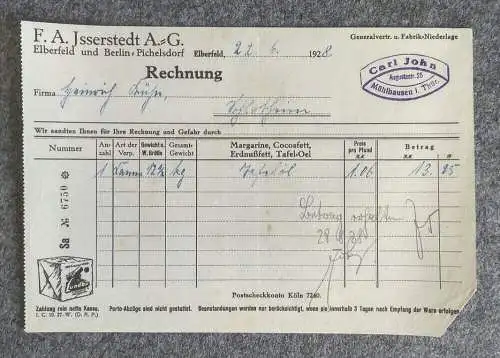 F. A. Jsserstedt A.-G.
Elberfeld und Berlin-Pichelsdorf
Generalvertr. u. Fabrik-Niederlage
Carl John
Augustastr. 25
Mühlhausen i. Thür.
Elberfeld, 22. 6. 1928
Rechnung
Firma Heinrich Kühn,
Schlotheim
Wir sandten Ihnen für Ihre Rechnung und Gefahr durch
Nummer An-zahl Art der Verp. Gewicht o. W. Größe Gesamt-Gewicht Margarine, Cocosfett, Erdnußfett, Tafel-Oel Preis pro Pfund RM Betrag RM
1 Kanne 12½ kg Tafelöl 1.06 13. 25
Betrag erhalten
28.6.28
Sa № 6750
Postscheckkonto Köln 7260.
Zahlung rein netto Kassa. Porto-Abzüge sind nicht gestattet. Beanstandungen werden nur berücksichtigt, wenn sie innerhalb 3 Tagen nach Empfang der Ware erfolgen